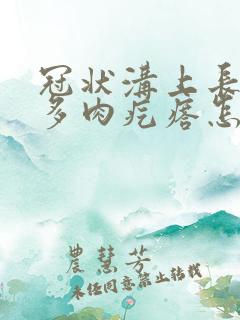 冠状溝上長
多肉疙瘩怎
農慧芳
未经同意禁止转载